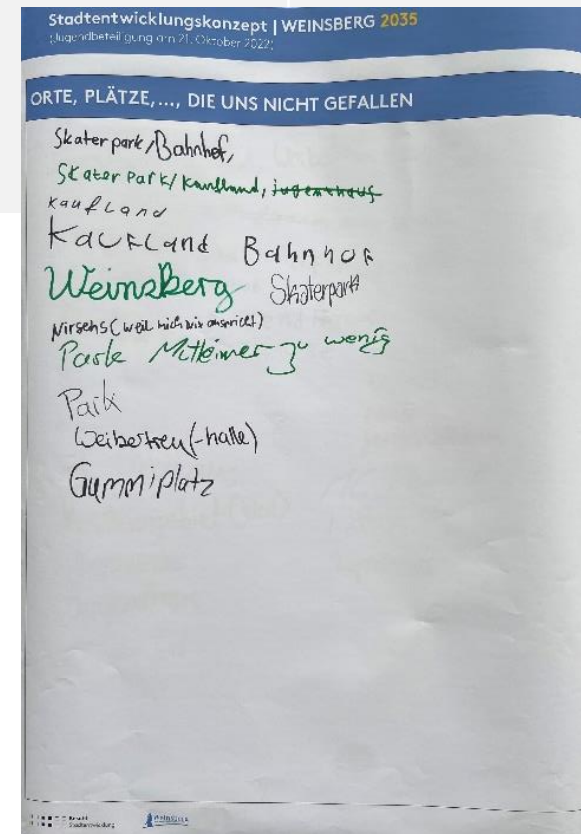 Stadtentwicklungskonzept | WEINSBERG 2035
(Jugendbeteiligung am 21. Oktober 2022)
ORTE, PLÄTZE,..., DIE UNS NICHT GEFALLEN
Skaterpark/Bahnhof,
Skater Park/Kaufland, jugenthaus
Kaufland
Kaufland Bahnhof
Weinsberg Skaterpark
Nirgens (weil mich nix anspricht)
Park Mülleimer zu wenig
Park
Weibertreu(-halle)
Gummiplatz
Stadtentwicklung
Weinsberg